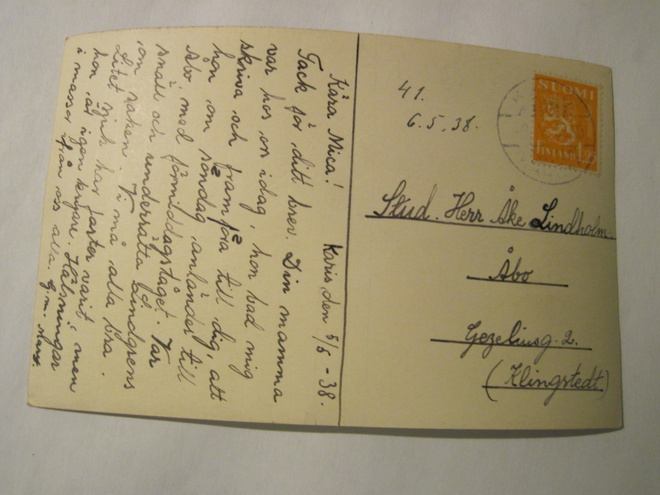 Karis den 5/5 - 38.
Kära Mica!
Tack för ditt brev. Din mamma
var hos oss idag, hon bad mig
skriva och framföra till dig, att
hon om söndag anländer till
Åbo med förmiddagståget. Var
snäll och underrätta Lindgrens
om saken. Vi må alla bra.
Litet sjuk har faster varit, men
hon är igen krya. Hälsningar
i massor från oss alla.
41.
6.5.38.
SUOMI
FINLAND
Stud. Herr Åke Lindholm
Åbo
Gezeliusg. 2.
(Klingstedt)